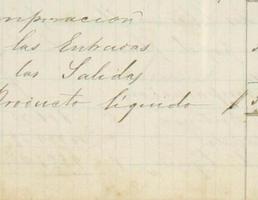 mparacion
las Entradas
las Salidas
Producto liquido $